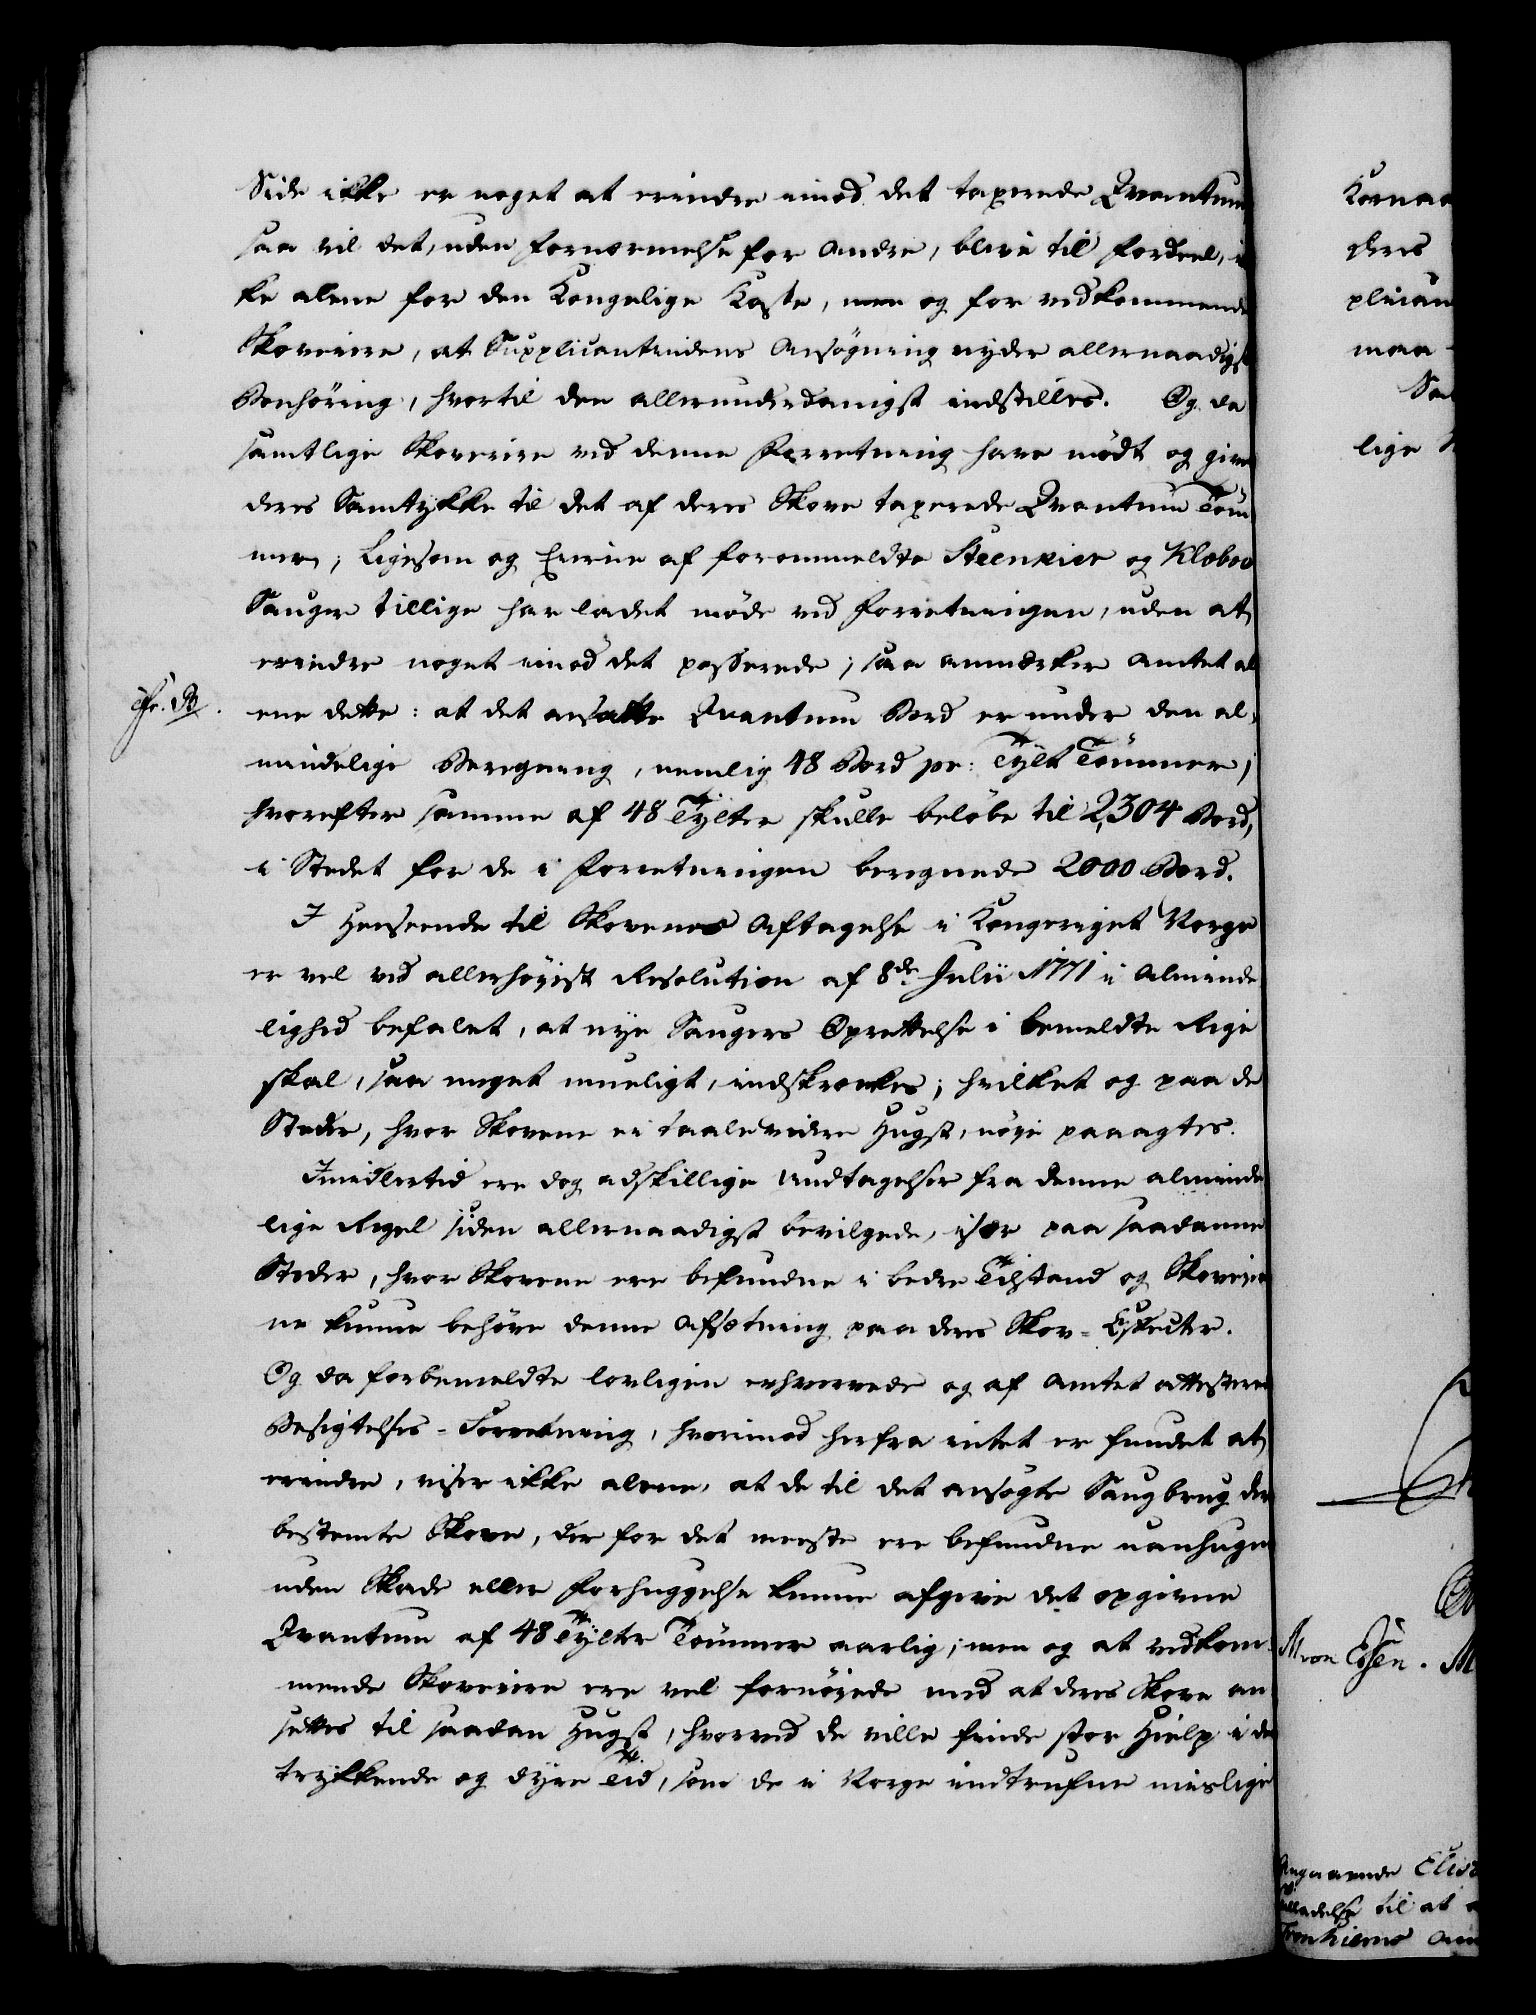 Side ikke er noget at erindre imod det taxerede Qvantum
saa vil det, uden Fornærmelse for Andre, blive til Fordeel, ik
ke alene for den Kongelige Kasse, men og for vedkommende
Skoveiere, at Supplicantindens Ansøgning nyder allernaadigst
Bønhøring, hvortil den allerunderdanigst indstilles. Og da
samtlige Skoveiere ved denne Forretning have mødt og givet
deres Samtykke til det af deres Skove taxerede Qvantum Töm
mer, Ligesom og Eierne af forommeldte Steenkier og Klæboe
Sauger tillige har ladet møde ved Forretningen, uden at
erindre noget imod det passerede; saa anmærker Amtet al
ene dette: at det ansatte Qvantum Bord er under den al-
mindelige Beregning, nemlig 48 Bord pr: Tylt Tömmer,
hvorefter samme af 48 Tylter skulle beløbe til 2,304 Bord,
i Stedet for de i Forretningen beregnede 2000 Bord.
I Henseende til Skovenes Aftagelse i Kongeriget Norge
er vel ved allerhøyest Resolution af 8de Julii 1771 i Alminde
lighed befalet, at nye Saugers Oprettelse i bemeldte Rige
skal, saa meget mueligt, indskrænkes; hvilket og paa de
Steder, hvor Skovene ei taale videre Hugst, nøye paaagtes.
Imidlertid ere dog adskillige Undtagelser fra denne alminde
lige Regel siden allernaadigst bevilgede, især paa saadanne
Steder, hvor Skovene ere befundne i bedre Tilstand og Skoveier
ne kunne behöve denne Afsætning paa deres Skov-Effecter.
Og da forbemeldte lovligen erhvervede og af Amtet attesterede
Besigtelses-Forretning, hvorimod herfra intet er fundet at
erindre, viser ikke alene, at de til det ansøgte Saugbrug der
bestemte Skove, der for det meeste ere befundne uanhugne
uden Skade eller Forhuggelse kunne afgive det opgivne
Qvantum af 48 Tylter Tömmer aarlig; men og at vedkom-
mende Skoveiere ere vel fornøiede med at deres Skove an
sættes til saadan Hugst, hvorved de ville finde stor Hielp i de
trykkende og dyre Tid, som de i Norge indtrufne mislige
cfr. B.
Kornaa
deres
plican
maa
Saa
lige
von Essen. M
Angaaende Elis
Tilladelse til at
Tronhiems Am